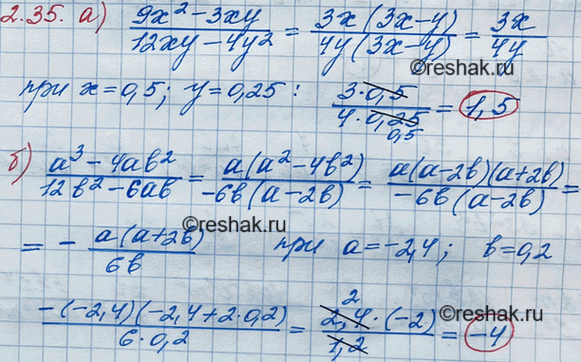 2.35. а) (9x² − 3xy)/(12xy − 4y²) = (3x(3x−y))/(4y(3x−y)) = 3x/4y
©reshak.ru
при x=0,5; y=0,25 : (3·0,5)/(4·0,25) = 1,5
0,5
©reshak.ru
б) (a³ − 4ab²)/(12b² − 6ab) = (a(a² − 4b²))/(−6b(a−2b)) = (a(a−2b)(a+2b))/(−6b(a−2b)) =
©reshak.ru
= − (a(a+2b))/(6b) при a=−2,4; b=0,2
2
(−(−2,4)(−2,4+2·0,2))/(6·0,2) = (2,4·(−2))/(1,2) = −4
©reshak.ru